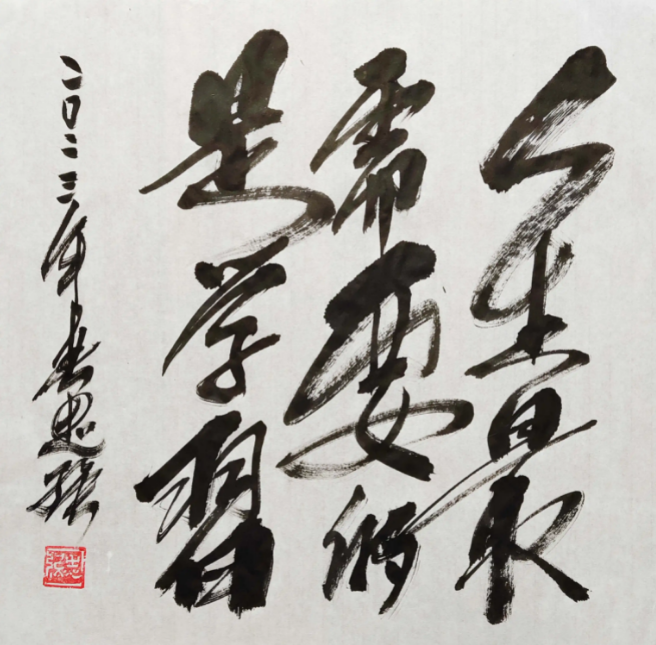 人生最
需要的
是学习
二〇二三年春忠强
忠强